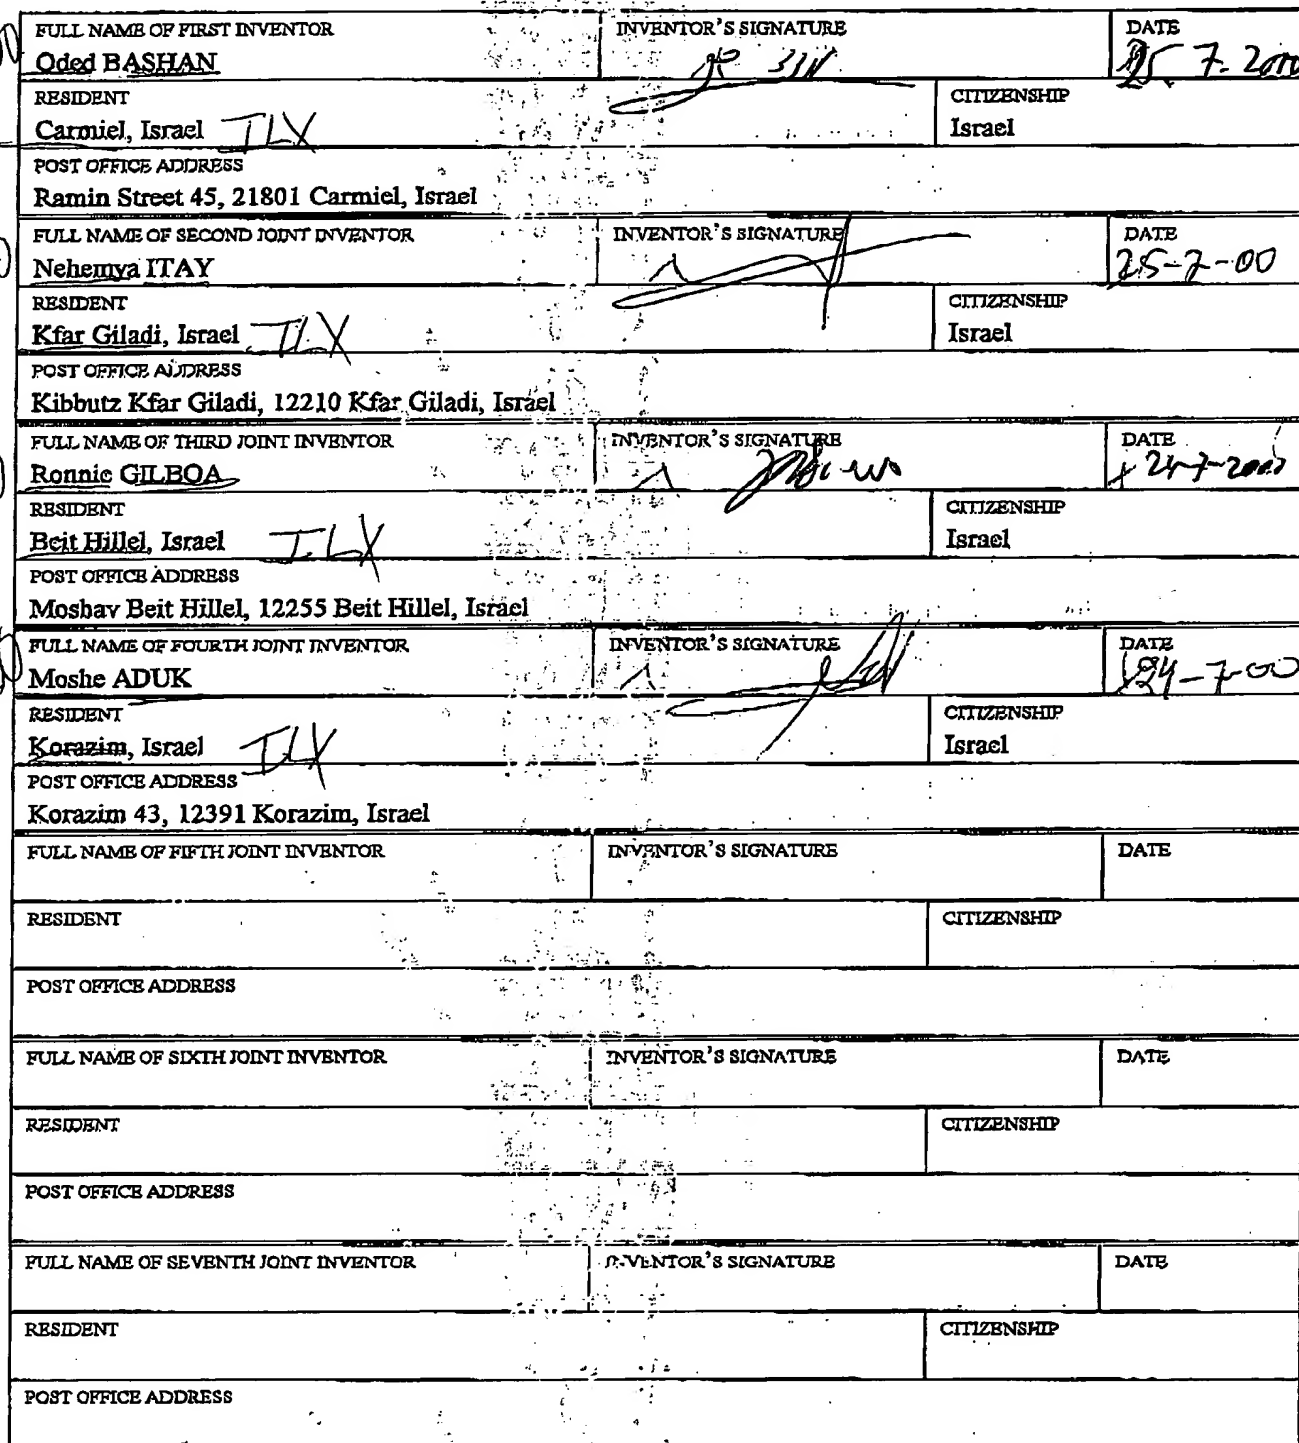 FULL NAME OF FIRST INVENTOR INVENTOR'S SIGNATURE DATE
Oded BASHAN 25. 7. 2000
RESIDENT CITIZENSHIP
Carmiel, Israel ILX Israel
POST OFFICE ADDRESS
Ramin Street 45, 21801 Carmiel, Israel
FULL NAME OF SECOND JOINT INVENTOR INVENTOR'S SIGNATURE DATE
Nehemya ITAY 25-7-00
RESIDENT CITIZENSHIP
Kfar Giladi, Israel ILX Israel
POST OFFICE ADDRESS
Kibbutz Kfar Giladi, 12210 Kfar Giladi, Israel
FULL NAME OF THIRD JOINT INVENTOR INVENTOR'S SIGNATURE DATE
Ronnie GILBOA 24-7-2000
RESIDENT CITIZENSHIP
Beit Hillel, Israel ILX Israel
POST OFFICE ADDRESS
Moshav Beit Hillel, 12255 Beit Hillel, Israel
FULL NAME OF FOURTH JOINT INVENTOR INVENTOR'S SIGNATURE DATE
Moshe ADUK 24-7-00
RESIDENT CITIZENSHIP
Korazim, Israel ILX Israel
POST OFFICE ADDRESS
Korazim 43, 12391 Korazim, Israel
FULL NAME OF FIFTH JOINT INVENTOR INVENTOR'S SIGNATURE DATE
RESIDENT CITIZENSHIP
POST OFFICE ADDRESS
FULL NAME OF SIXTH JOINT INVENTOR INVENTOR'S SIGNATURE DATE
RESIDENT CITIZENSHIP
POST OFFICE ADDRESS
FULL NAME OF SEVENTH JOINT INVENTOR INVENTOR'S SIGNATURE DATE
RESIDENT CITIZENSHIP
POST OFFICE ADDRESS